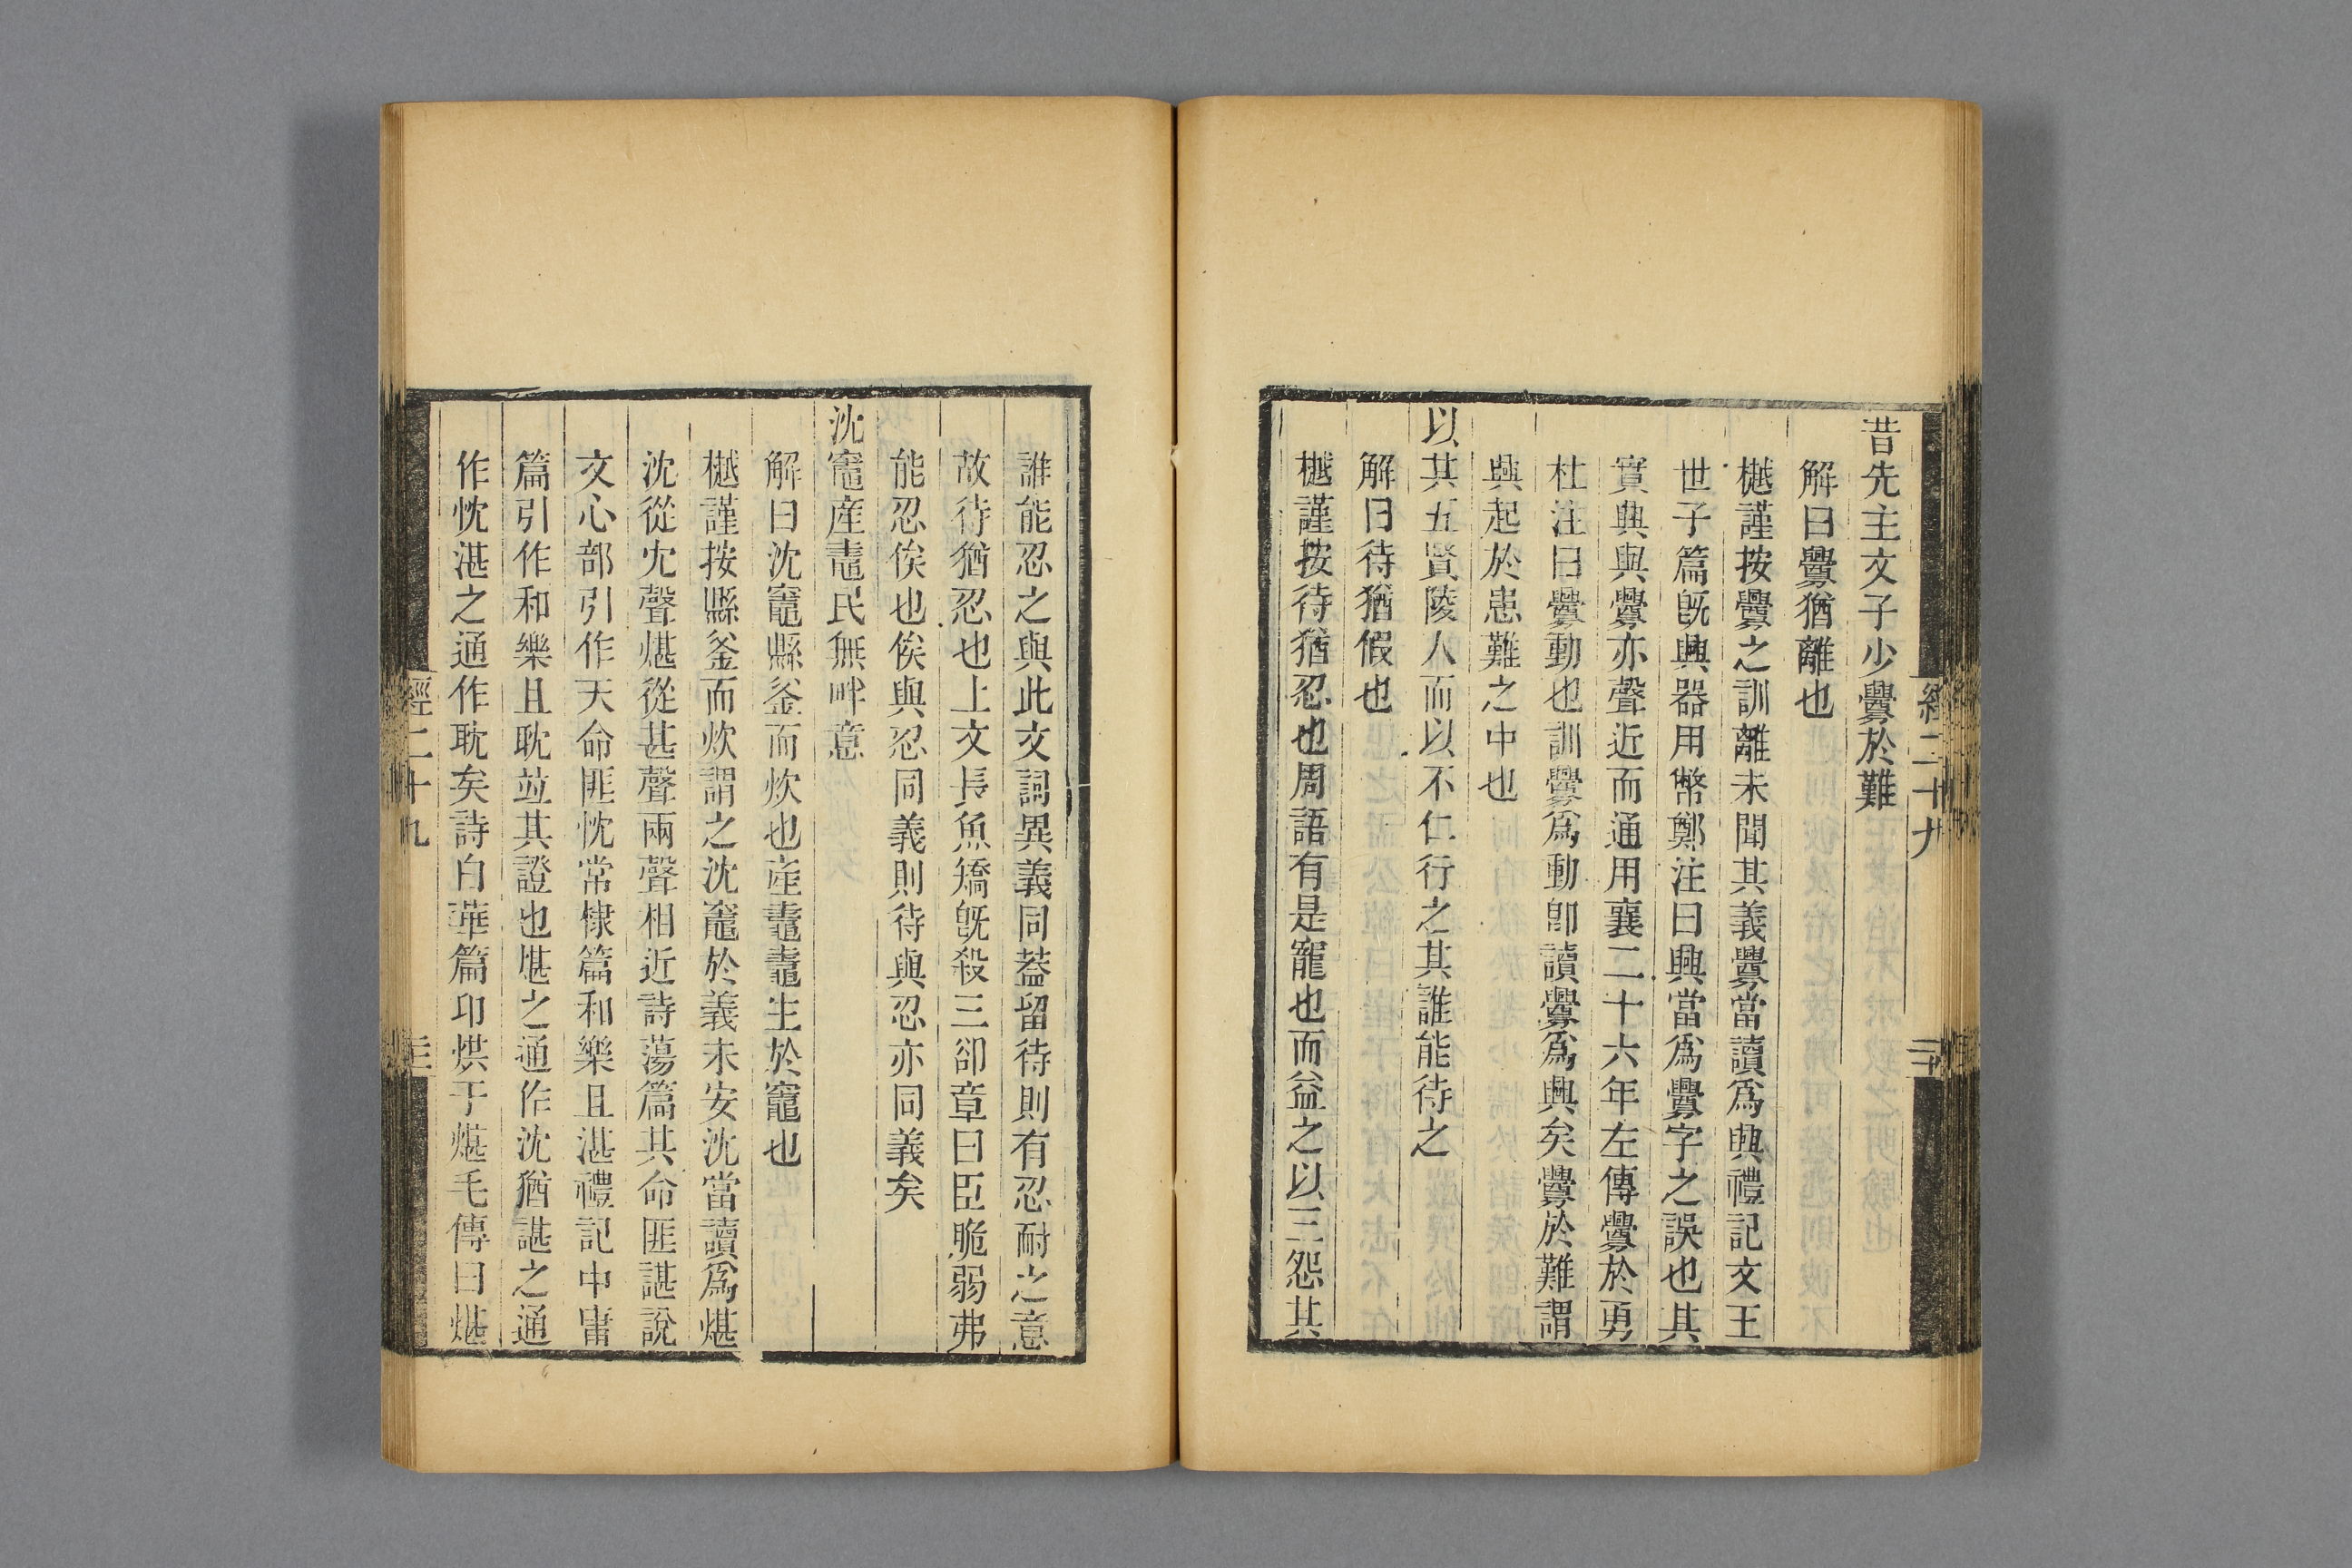 昔先主文子少釁於難
解曰釁猶離也
樾謹按釁之訓離未聞其義釁當讀爲興禮記文王
世子篇旣興器用幣鄭注曰興當爲釁字之誤也其
實興與釁亦聲近而通用襄二十六年左傳釁於勇
杜注曰釁動也訓釁爲動卽讀釁爲興矣釁於難謂
興起於患難之中也
以其五賢陵人而以不仁行之其誰能待之
解曰待猶假也
樾謹按待猶忍也周語有是寵也而益之以三怨其
經二十九
三十
誰能忍之與此文詞異義同葢留待則有忍耐之意
故待猶忍也上文長魚矯旣殺三卻章曰臣脆弱弗
能忍俟也俟與忍同義則待與忍亦同義矣
沈竈產鼃民無畔意
解曰沈竈縣釜而炊也產鼃鼃生於竈也
樾謹按縣釜而炊謂之沈竈於義未安沈當讀爲煁
沈從冘聲煁從甚聲兩聲相近詩蕩篇其命匪諶說
文心部引作天命匪忱常棣篇和樂且湛禮記中庸
篇引作和樂且耽竝其證也煁之通作沈猶諶之通
作忱湛之通作耽矣詩白華篇卬烘于煁毛傳曰煁
經二十九